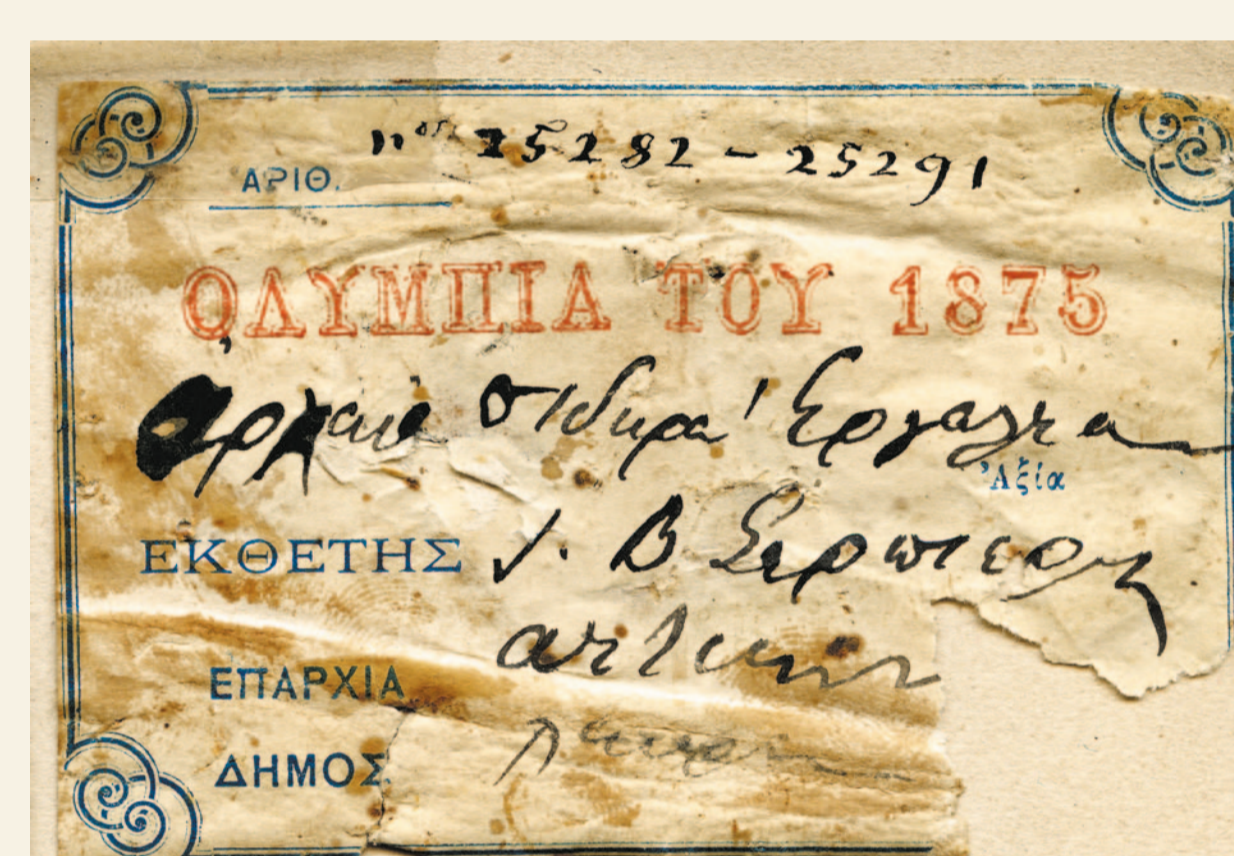 ΑΡΙΘ. nos 25282 - 25291
ΟΛΥΜΠΙΑ ΤΟΥ 1875
Ἀρχαῖα σιδηρᾶ Ἐργαλεῖα
Ἀξία
ΕΚΘΕΤΗΣ Ι. Β Σερπιερη
ΕΠΑΡΧΙΑ αττικης
ΔΗΜΟΣ